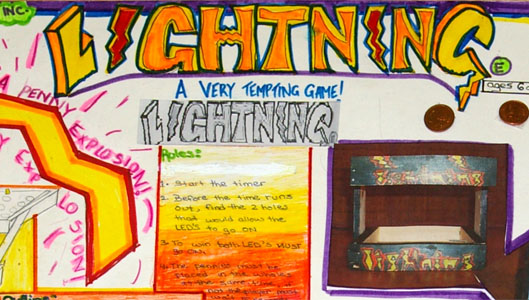 INC.
LIGHTNING
E
ages 6
A VERY TEMPTING GAME!
LIGHTNING
A PENNY EXPLOSION!
Rules:
1. Start the timer
2. Before the time runs
out, find the 2 holes
that would allow the
LED'S to go ON
3. To win both LED's Must
go ON
4. The pennies must be
placed in the holes
at the same time